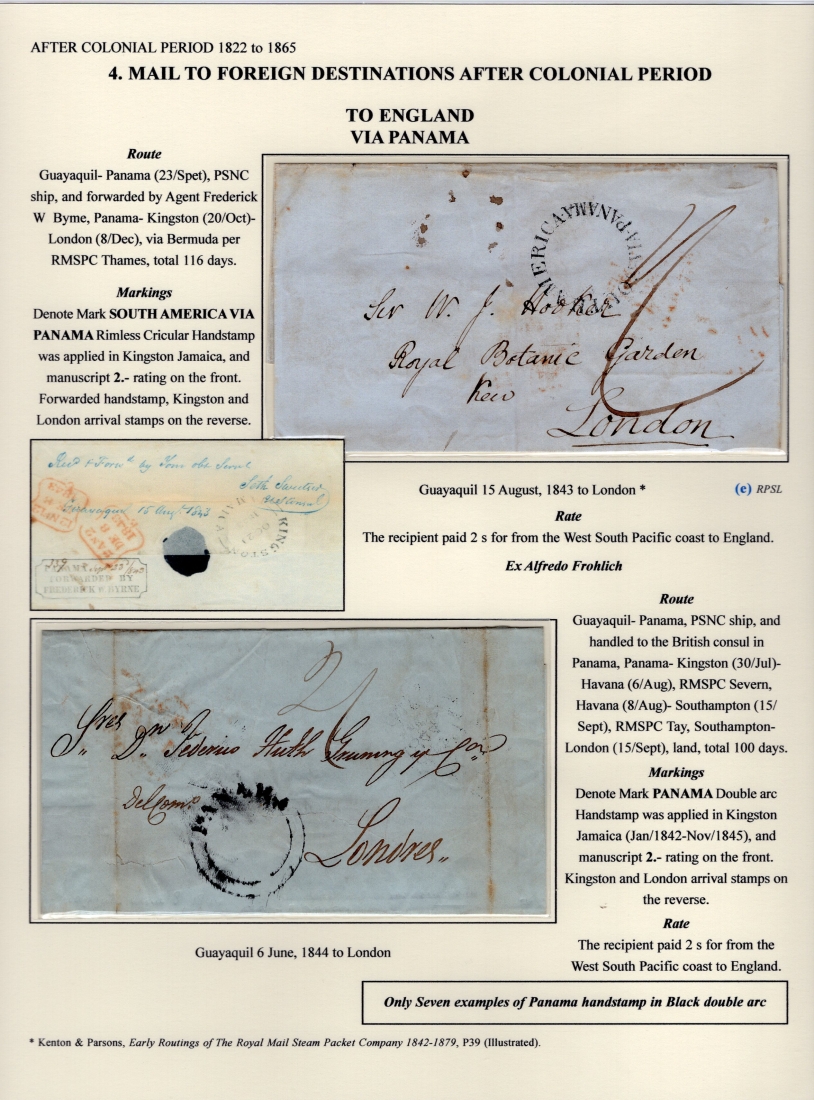 AFTER COLONIAL PERIOD 1822 to 1865
4. MAIL TO FOREIGN DESTINATIONS AFTER COLONIAL PERIOD
TO ENGLAND
VIA PANAMA
Route
Guayaquil- Panama (23/Spet), PSNC
ship, and forwarded by Agent Frederick
W Byrne, Panama- Kingston (20/Oct)-
London (8/Dec), via Bermuda per
RMSPC Thames, total 116 days.
Markings
Denote Mark SOUTH AMERICA VIA
PANAMA Rimless Cricular Handstamp
was applied in Kingston Jamaica, and
manuscript 2.- rating on the front.
Forwarded handstamp, Kingston and
London arrival stamps on the reverse.
AMERICA VIA-PANAMA
Sir W. J. Hooker
Royal Botanic Garden
Kew
London
Recd & Forwd by Your obt Servt
Guayaquil 15 Augt 1843
KINGSTON
FORWARDED BY
FREDERICK W BYRNE
Guayaquil 15 August, 1843 to London *
(e) RPSL
Rate
The recipient paid 2 s for from the West South Pacific coast to England.
Ex Alfredo Frohlich
2
Sres Dn Federico Huth Gruning y Ca
Del Como
PANAMA
Londres
Route
Guayaquil- Panama, PSNC ship, and
handled to the British consul in
Panama, Panama- Kingston (30/Jul)-
Havana (6/Aug), RMSPC Severn,
Havana (8/Aug)- Southampton (15/
Sept), RMSPC Tay, Southampton-
London (15/Sept), land, total 100 days.
Markings
Denote Mark PANAMA Double arc
Handstamp was applied in Kingston
Jamaica (Jan/1842-Nov/1845), and
manuscript 2.- rating on the front.
Kingston and London arrival stamps on
the reverse.
Rate
The recipient paid 2 s for from the
West South Pacific coast to England.
Guayaquil 6 June, 1844 to London
Only Seven examples of Panama handstamp in Black double arc
* Kenton & Parsons, Early Routings of The Royal Mail Steam Packet Company 1842-1879, P39 (Illustrated).